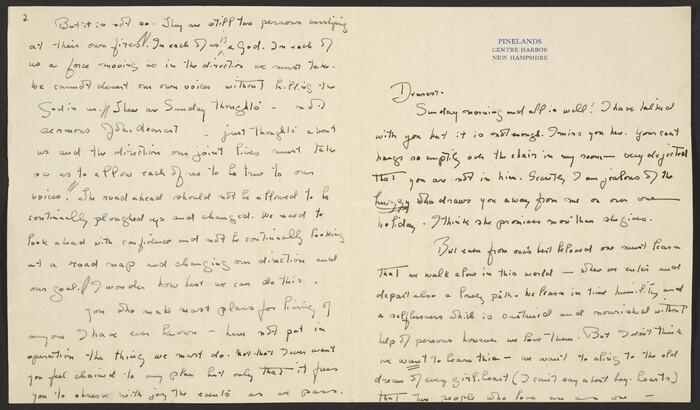 PINELANDS
CENTRE HARBOR
NEW HAMPSHIRE
Dearest:
Sunday morning and all is well! I have talked
with you but it is not enough. I miss you here. Your coat
hangs so emptily over the chair in my room — very dejected
that you are not in him. Secretly I am jealous of the
huzzy who draws you away from me on our one
holiday. I think she promises more than she gives.
But even from one's best beloved one must learn
that we walk alone in this world — when we enter and
depart also a lonely path. We learn in time humility and
a selflessness which is sustained and nourished without
help of persons however we love them. But I don't think
we want to learn this — we want to cling to the old
dream of every girl's heart (I can't say about boy-hearts)
that two people who love are as one —
2
But it is not so. They are still two persons
at their own fires. In each of us is a God. In each of
us a force moving us in the direction we must take.
We cannot desert our own voice without killing the
God in us. These are Sunday thoughts — not
sermons John dearest — just thoughts about
us and the direction our joint lives must take
so as to allow each of us to be true to our
voices. The road ahead should not be allowed to be
continually ploughed up and changed. We need to
look ahead with confidence and not be continually looking
at a road map and changing our direction and
our goal. I wonder how best we can do this.
You who make most plans for living of
anyone I have ever known — have not put in
operation the thing we must do. Not that I ever want
you feel chained to any plan but only that it frees
you to observe with joy the events as we pass.